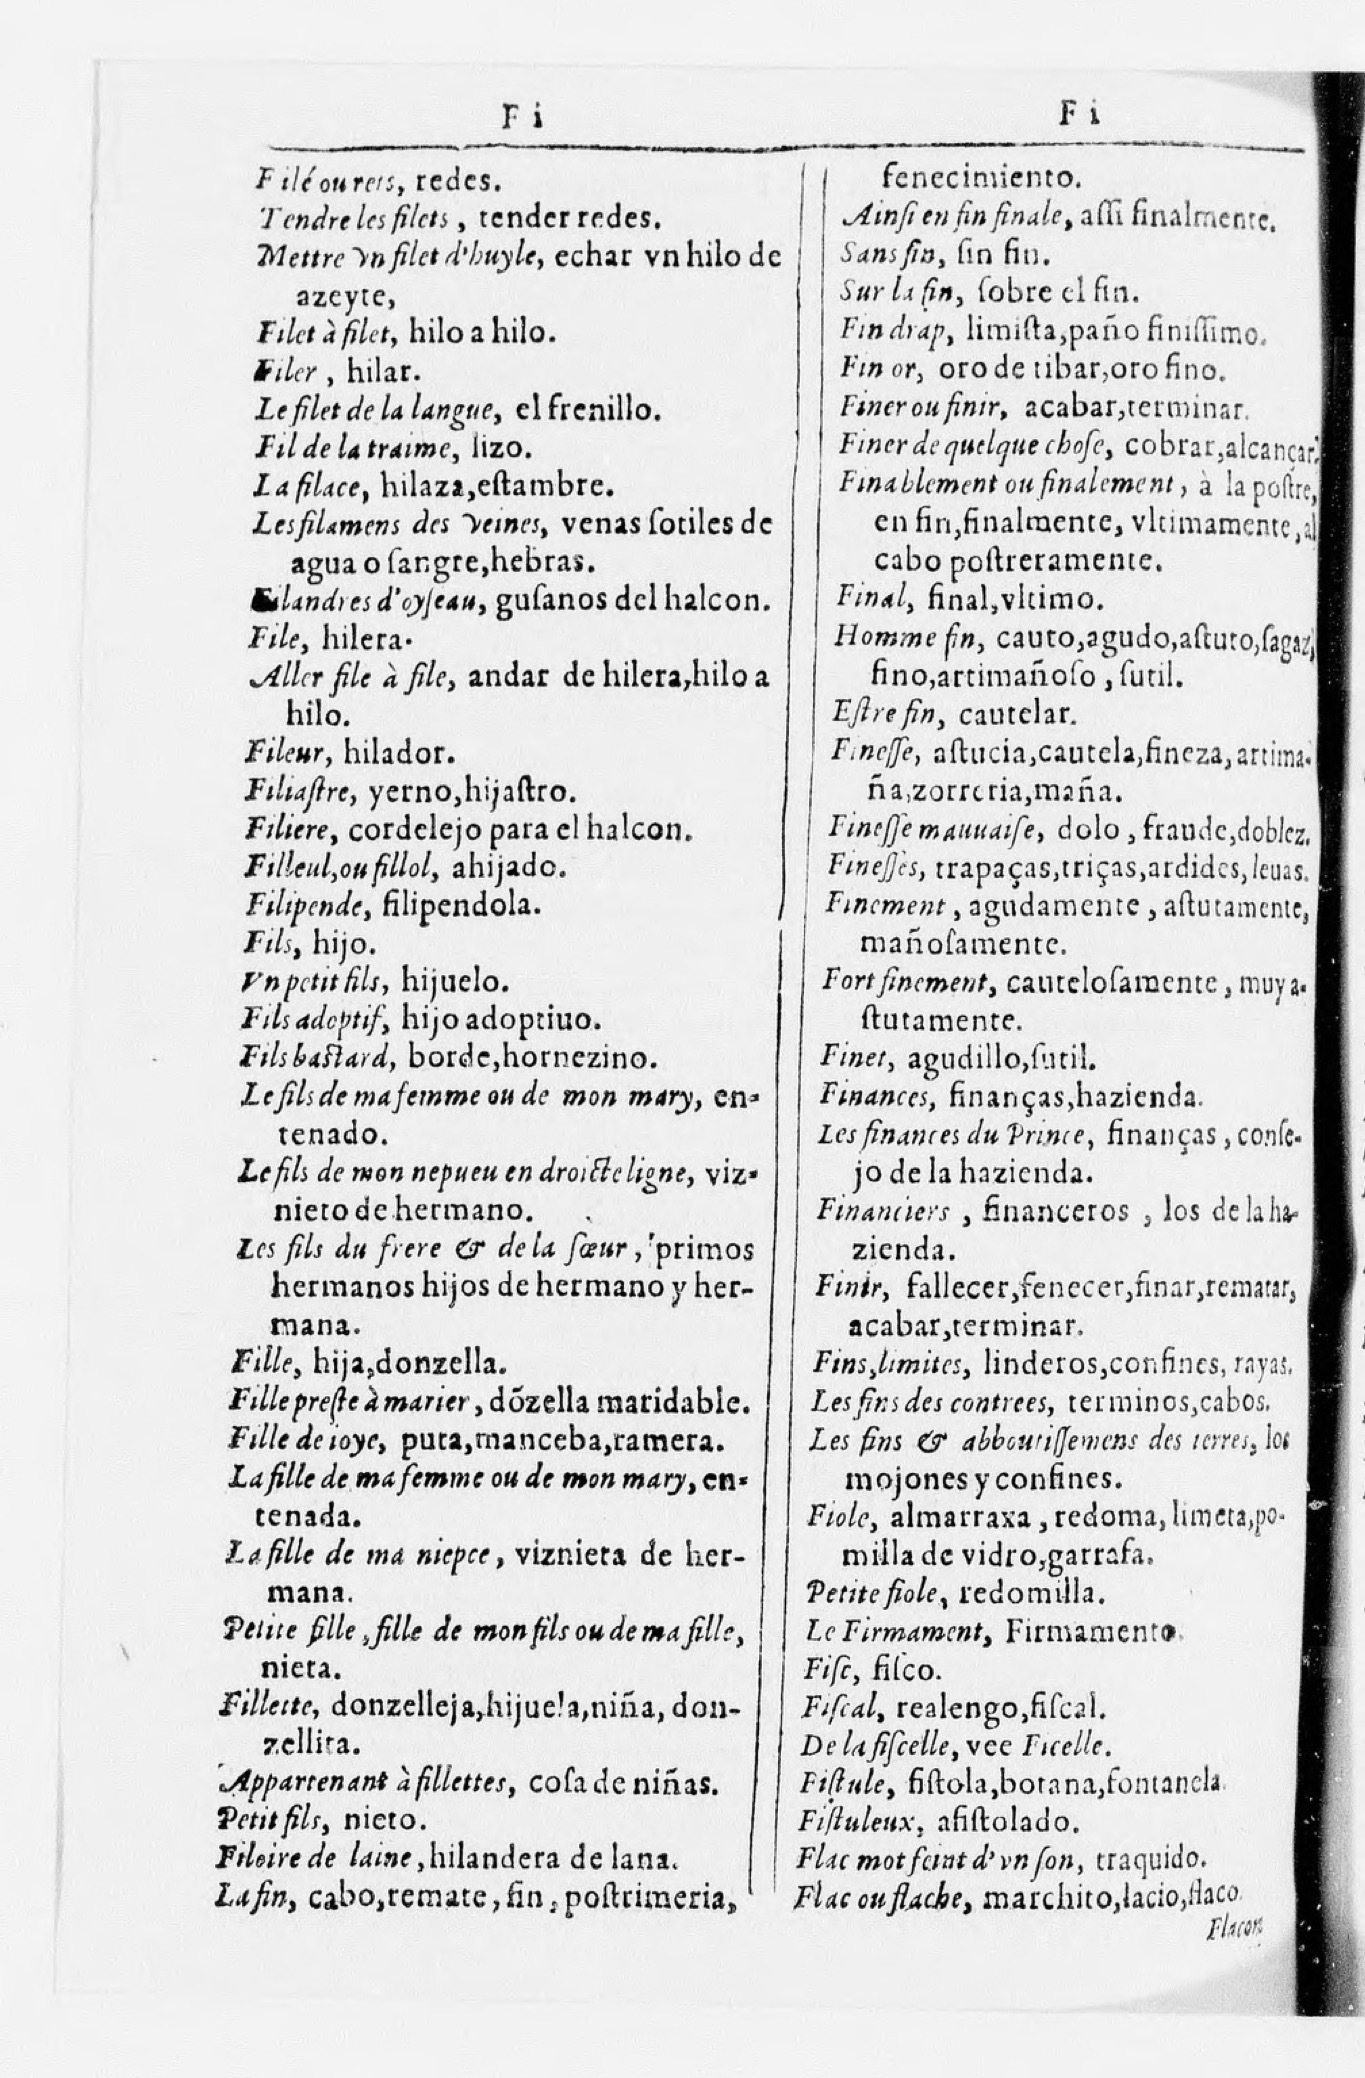 F i
Filé ou rets, redes.
Tendre les filets, tender redes.
Mettre vn filet d'huyle, echar vn hilo de
azeyte,
Filet à filet, hilo a hilo.
Filer, hilar.
Le filet de la langue, el frenillo.
Fil de la traime, lizo.
La filace, hilaza, eſtambre.
Les filamens des veines, venas ſotiles de
agua o ſangre, hebras.
Filandres d'oyſeau, guſanos del halcon.
File, hilera.
Aller file à file, andar de hilera, hilo a
hilo.
Fileur, hilador.
Filiaſtre, yerno, hijaſtro.
Filiere, cordelejo para el halcon.
Filleul, ou fillol, ahijado.
Filipende, filipendola.
Fils, hijo.
Vn petit fils, hijuelo.
Fils adoptif, hijo adoptiuo.
Fils baſtard, borde, hornezino.
Le fils de ma femme ou de mon mary, en-
tenado.
Le fils de mon nepueu en droicte ligne, viz-
nieto de hermano.
Les fils du frere & de la ſœur, primos
hermanos hijos de hermano y her-
mana.
Fille, hija, donzella.
Fille preſte à marier, dõzella maridable.
Fille de ioye, puta, manceba, ramera.
La fille de ma femme ou de mon mary, en-
tenada.
La fille de ma niepce, viznieta de her-
mana.
Petite fille, fille de mon fils ou de ma fille,
nieta.
Fillette, donzelleja, hijuela, niña, don-
zellita.
Appartenant à fillettes, coſa de niñas.
Petit fils, nieto.
Filoire de laine, hilandera de lana.
La fin, cabo, remate, fin, poſtrimeria,
F i
fenecimiento.
Ainſi en fin finale, aſſi finalmente.
Sans fin, ſin fin.
Sur la fin, ſobre el fin.
Fin drap, limiſta, paño finiſſimo.
Fin or, oro de tibar, oro fino.
Finer ou finir, acabar, terminar.
Finer de quelque choſe, cobrar, alcançar.
Finablement ou finalement, à la poſtre,
en fin, finalmente, vltimamente, al
cabo poſtreramente.
Final, final, vltimo.
Homme fin, cauto, agudo, aſtuto, ſagaz,
fino, artimañoſo, ſutil.
Eſtre fin, cautelar.
Fineſſe, aſtucia, cautela, fineza, artima-
ña, zorreria, maña.
Fineſſe mauuaiſe, dolo, fraude, doblez.
Fineſſes, trapaças, triças, ardides, leuas.
Finement, agudamente, aſtutamente,
mañoſamente.
Fort finement, cauteloſamente, muy a-
ſtutamente.
Finet, agudillo, ſutil.
Finances, finanças, hazienda.
Les finances du Prince, finanças, conſe-
jo de la hazienda.
Financiers, financeros, los de la ha-
zienda.
Finir, fallecer, fenecer, finar, rematar,
acabar, terminar.
Fins, limites, linderos, confines, rayas.
Les fins des contrees, terminos, cabos.
Les fins & abboutiſſemens des terres, los
mojones y confines.
Fiole, almarraxa, redoma, limeta, po-
milla de vidro, garrafa.
Petite fiole, redomilla.
Le Firmament, Firmamento.
Fiſc, fiſco.
Fiſcal, realengo, fiſcal.
De la fiſcelle, vee Ficelle.
Fiſtule, fiſtola, botana, fontanela.
Fiſtuleux, afiſtolado.
Flac mot feint d'vn ſon, traquido.
Flac ou flache, marchito, lacio, flaco.
Flacon